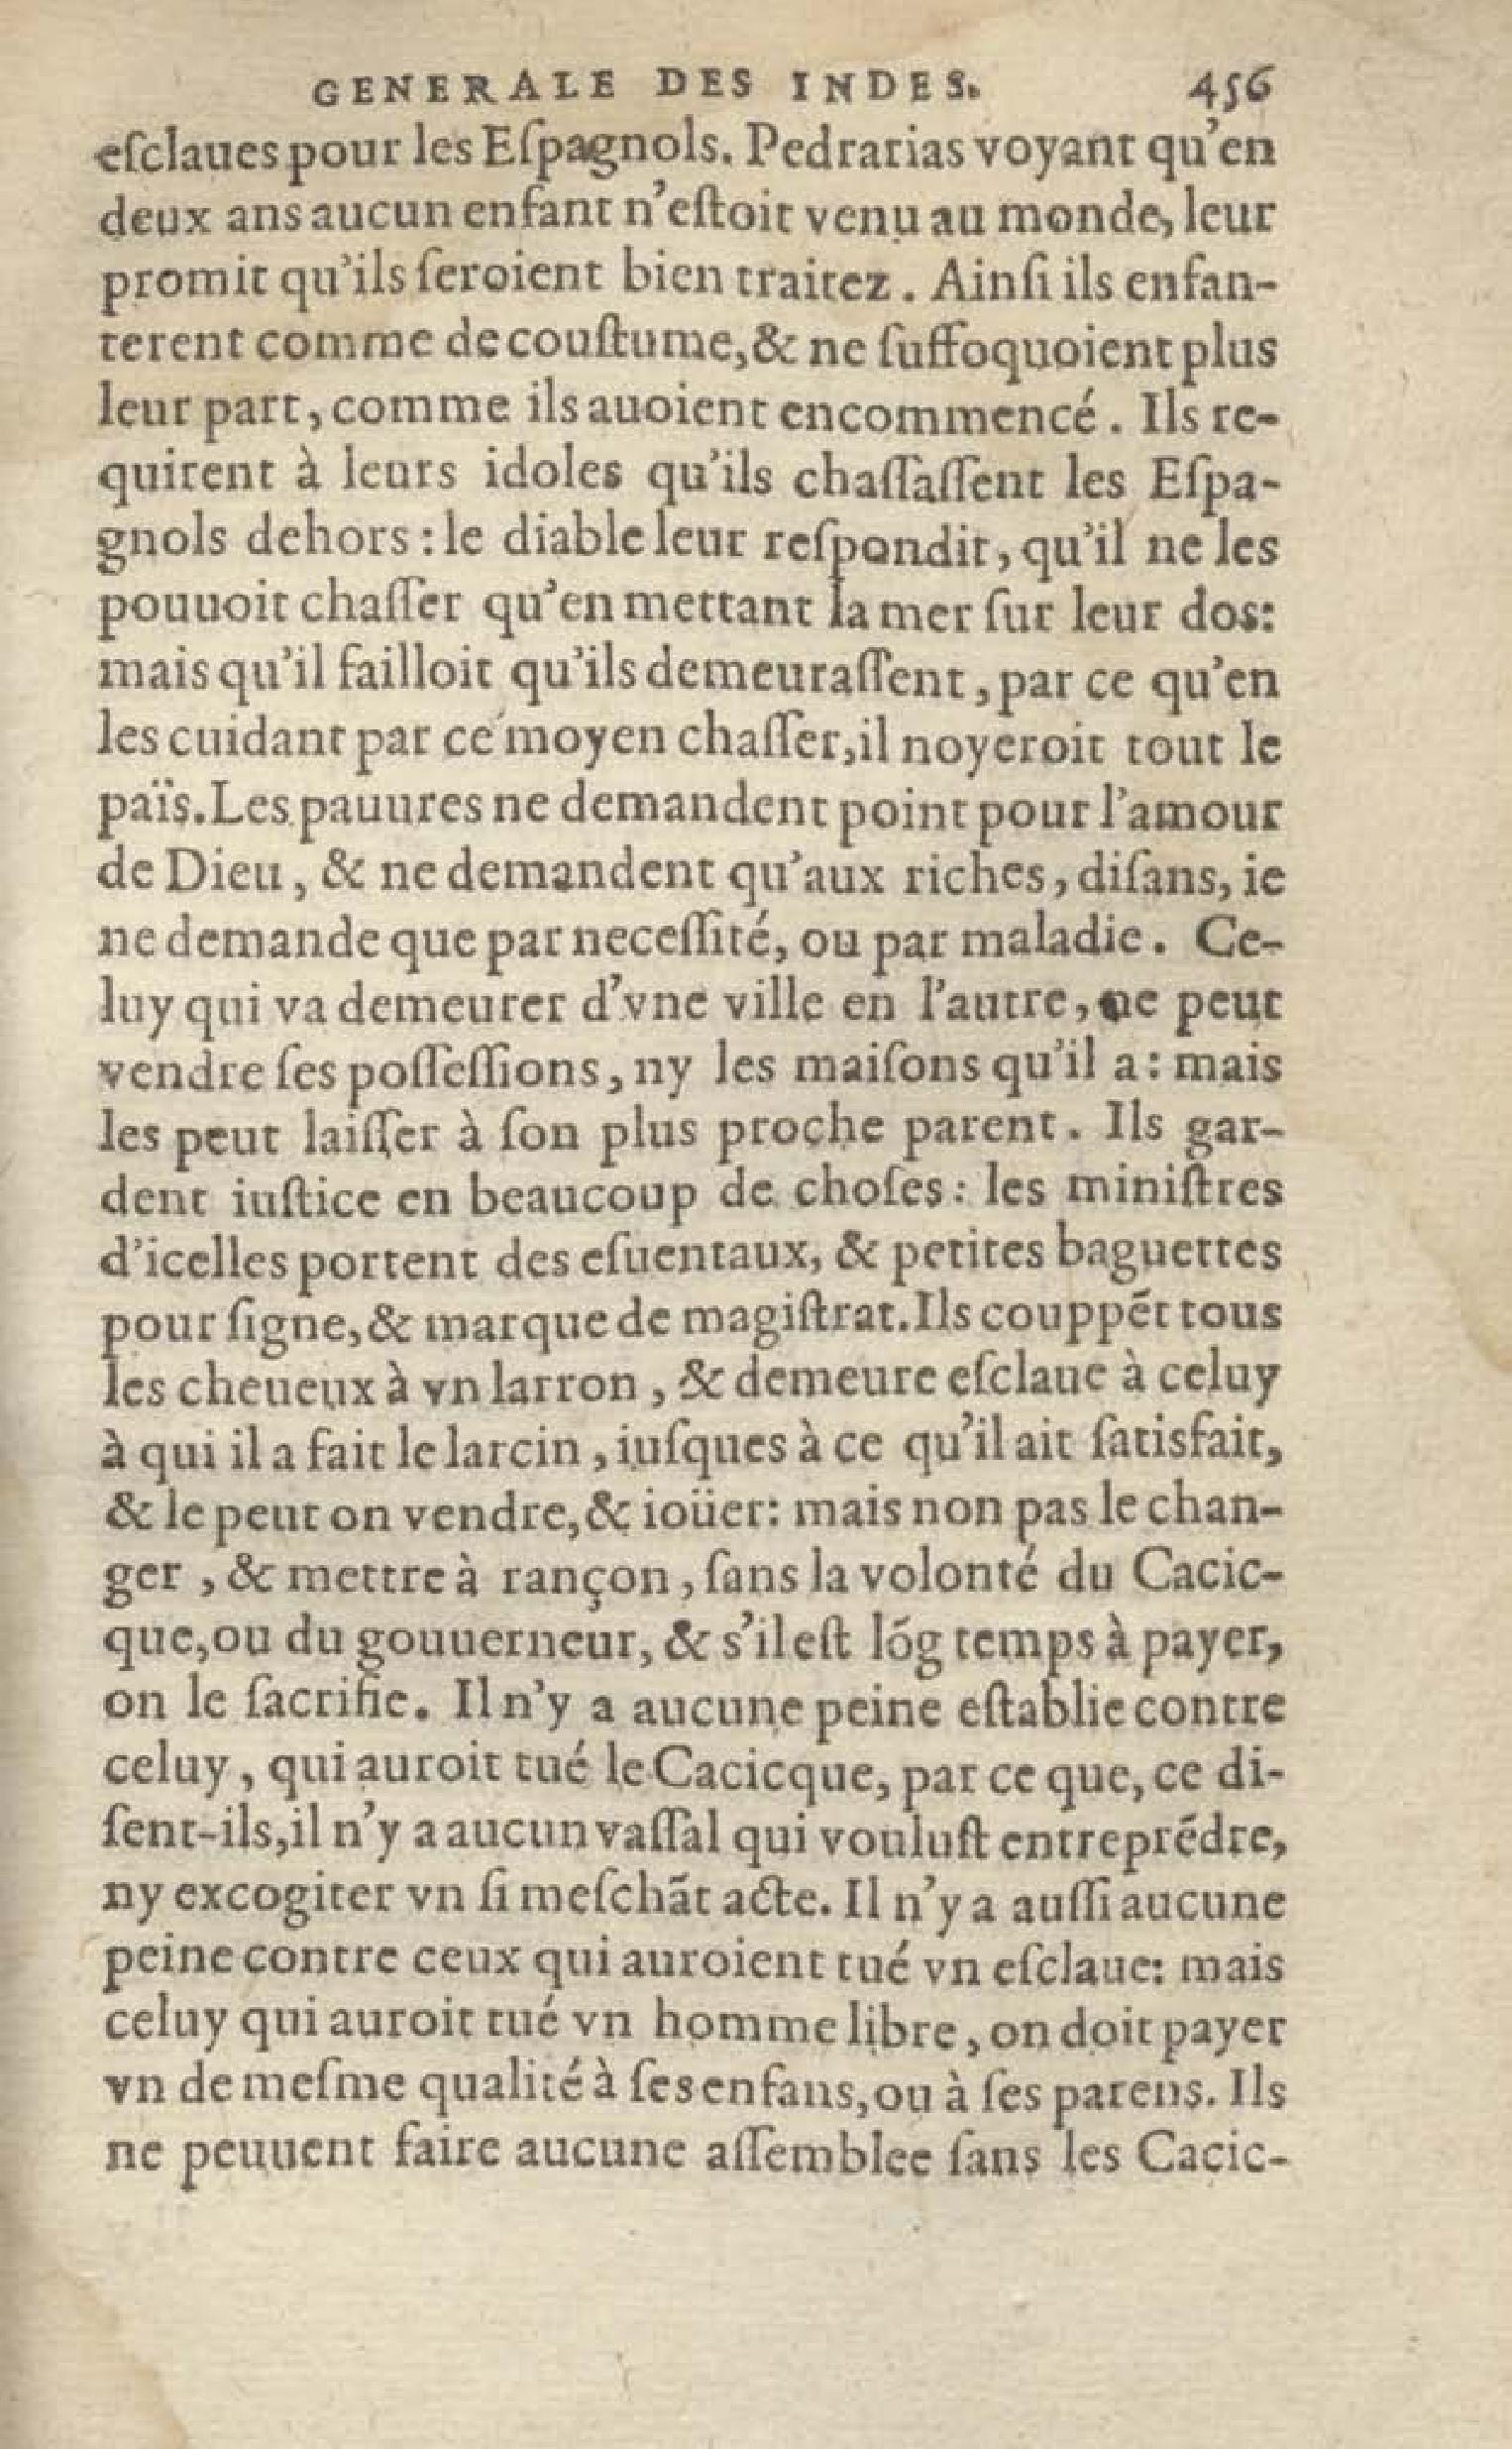 GENERALE DES INDES. 456
eſclaues pour les Eſpagnols. Pedrarias voyant qu'en
deux ans aucun enfant n'eſtoit venu au monde, leur
promit qu'ils ſeroient bien traitez. Ainſi ils enfan-
terent comme de couſtume, & ne ſuffoquoient plus
leur part, comme ils auoient encommencé. Ils re-
quirent à leurs idoles qu'ils chaſſaſſent les Eſpa-
gnols dehors: le diable leur reſpondit, qu'il ne les
pouuoit chaſſer qu'en mettant la mer ſur leur dos:
mais qu'il failloit qu'ils demeuraſſent, par ce qu'en
les cuidant par ce moyen chaſſer, il noyeroit tout le
païs. Les pauures ne demandent point pour l'amour
de Dieu, & ne demandent qu'aux riches, diſans, ie
ne demande que par neceſſité, ou par maladie. Ce-
luy qui va demeurer d'vne ville en l'autre, ne peut
vendre ſes poſſeſſions, ny les maiſons qu'il a: mais
les peut laiſſer à ſon plus proche parent. Ils gar-
dent iuſtice en beaucoup de choſes: les miniſtres
d'icelles portent des eſuentaux, & petites baguettes
pour ſigne, & marque de magiſtrat. Ils couppēt tous
les cheueux à vn larron, & demeure eſclaue à celuy
à qui il a fait le larcin, iuſques à ce qu'il ait ſatisfait,
& le peut on vendre, & ioüer: mais non pas le chan-
ger, & mettre à rançon, ſans la volonté du Cacic-
que, ou du gouuerneur, & s'il eſt lōg temps à payer,
on le ſacrifie. Il n'y a aucune peine eſtablie contre
celuy, qui auroit tué le Cacicque, par ce que, ce di-
ſent-ils, il n'y a aucun vaſſal qui vouluſt entreprēdre,
ny excogiter vn ſi meſchāt acte. Il n'y a auſſi aucune
peine contre ceux qui auroient tué vn eſclaue: mais
celuy qui auroit tué vn homme libre, on doit payer
vn de meſme qualité à ſes enfans, ou à ſes parens. Ils
ne peuuent faire aucune aſſemblee ſans les Cacic-